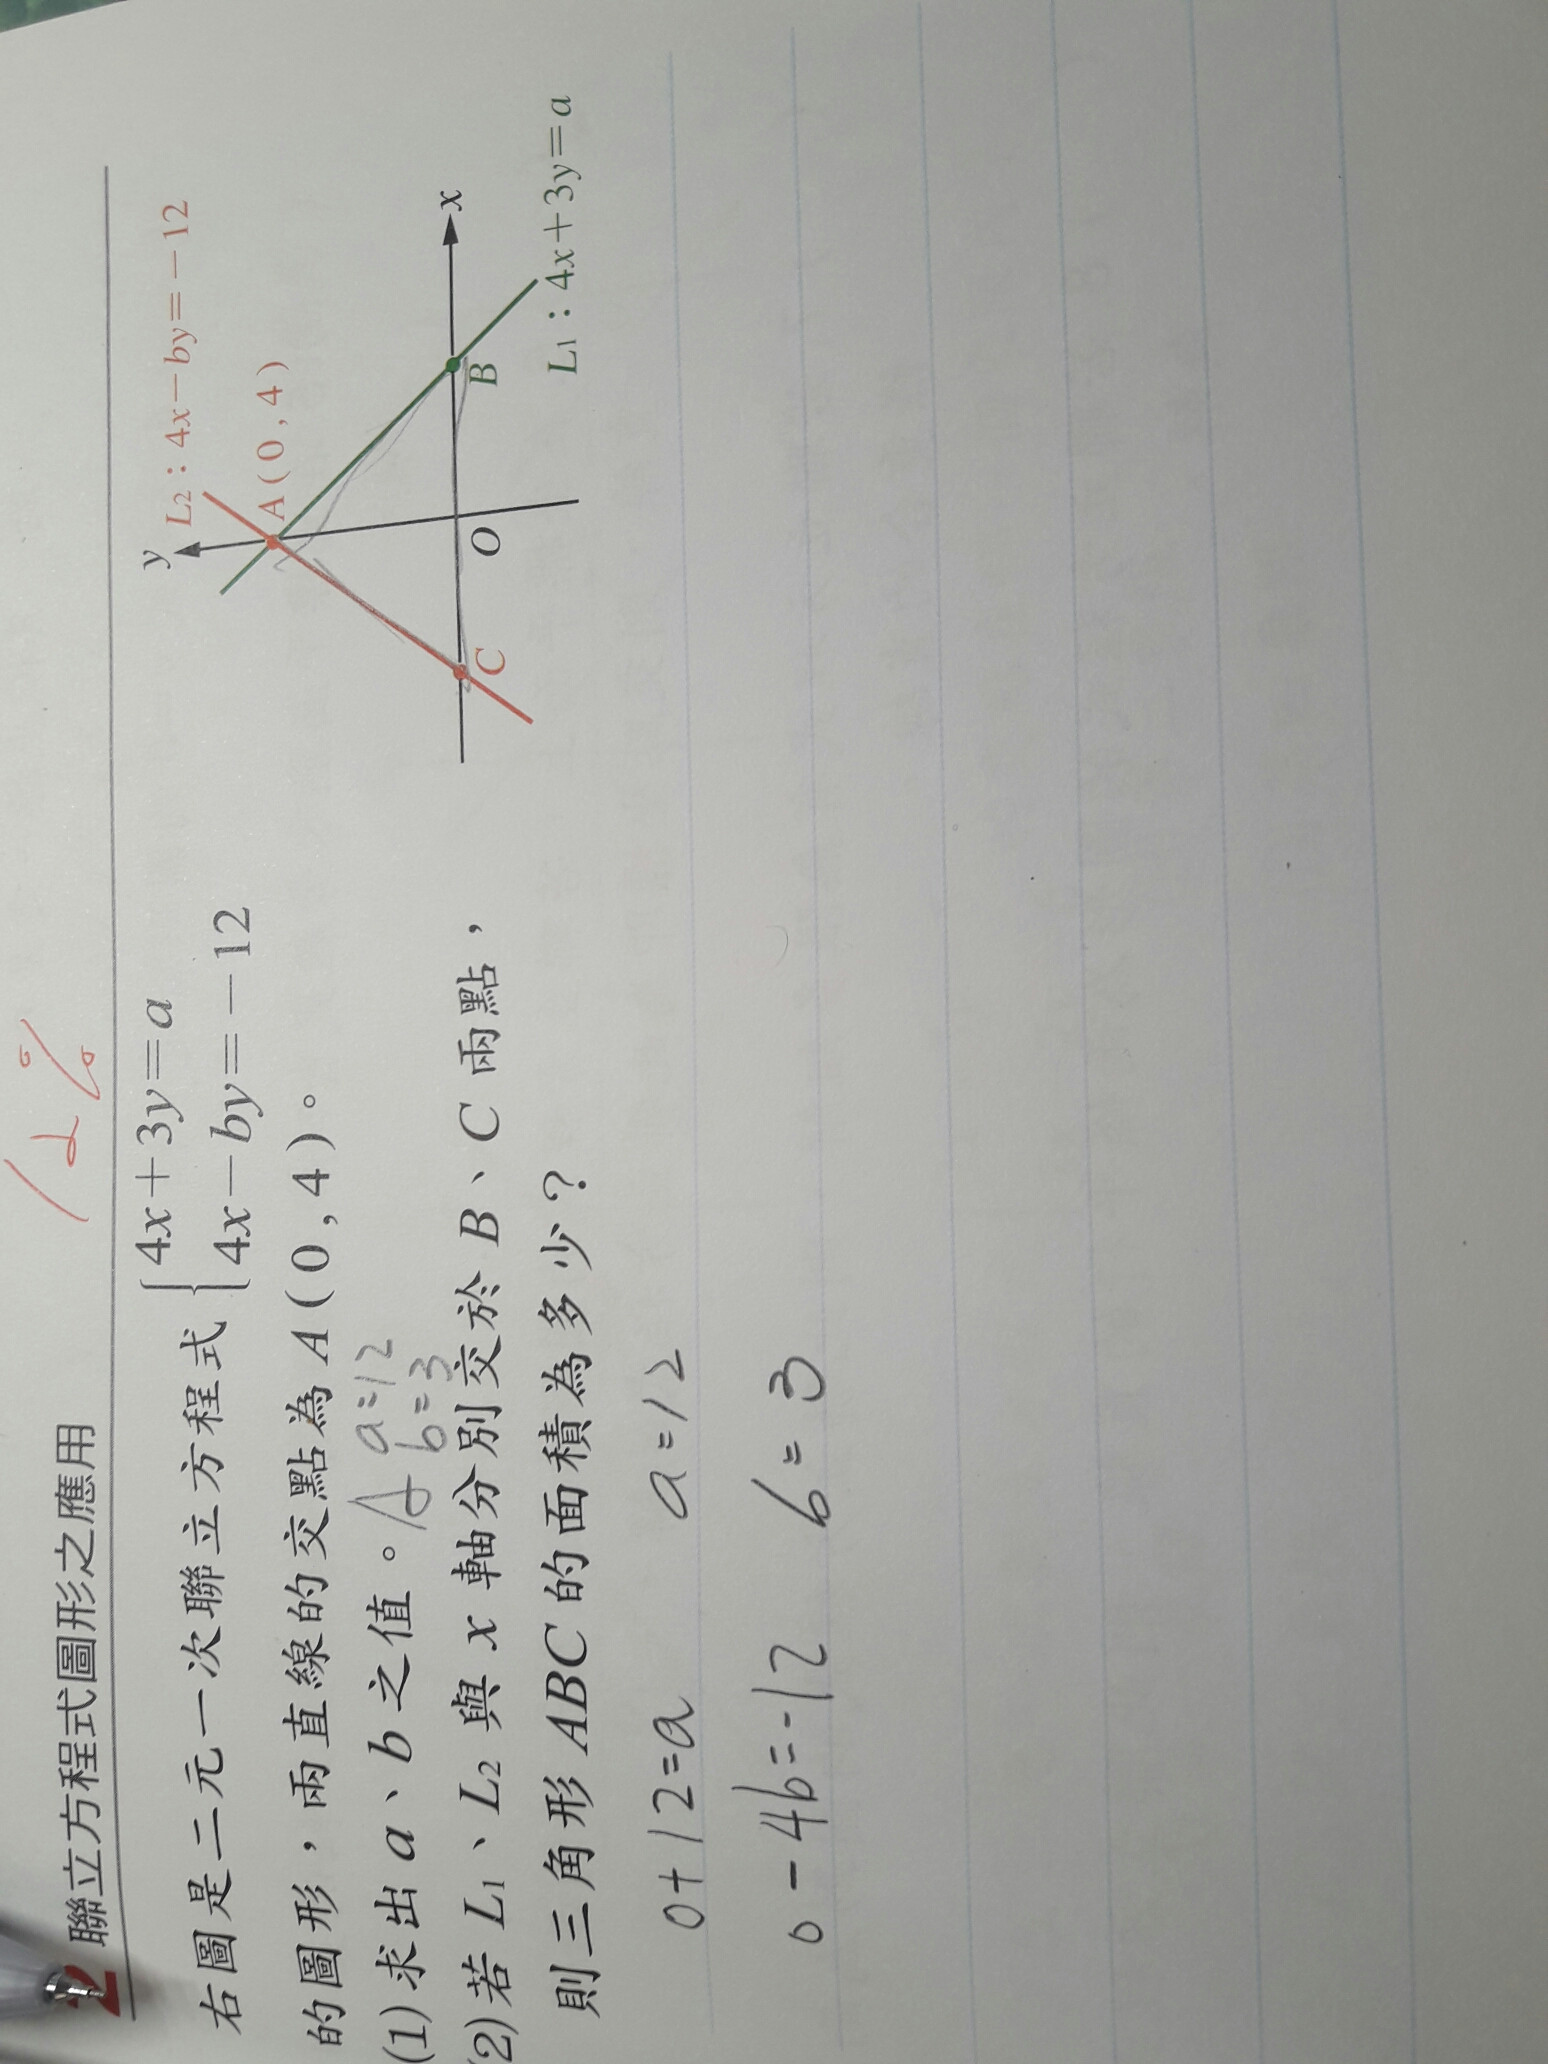 12%
2 聯立方程式圖形之應用
右圖是二元一次聯立方程式 { 4x+3y=a
4x-by=-12
的圖形，兩直線的交點為 A(0,4)。
(1)求出 a、b 之值。A a=12
b=3
(2)若 L₁、L₂ 與 x 軸分別交於 B、C 兩點，
則三角形 ABC 的面積為多少？
y
L₂：4x-by=-12
A(0,4)
x
C
O
B
L₁：4x+3y=a
0+12=a a=12
0-4b=-12 b=3